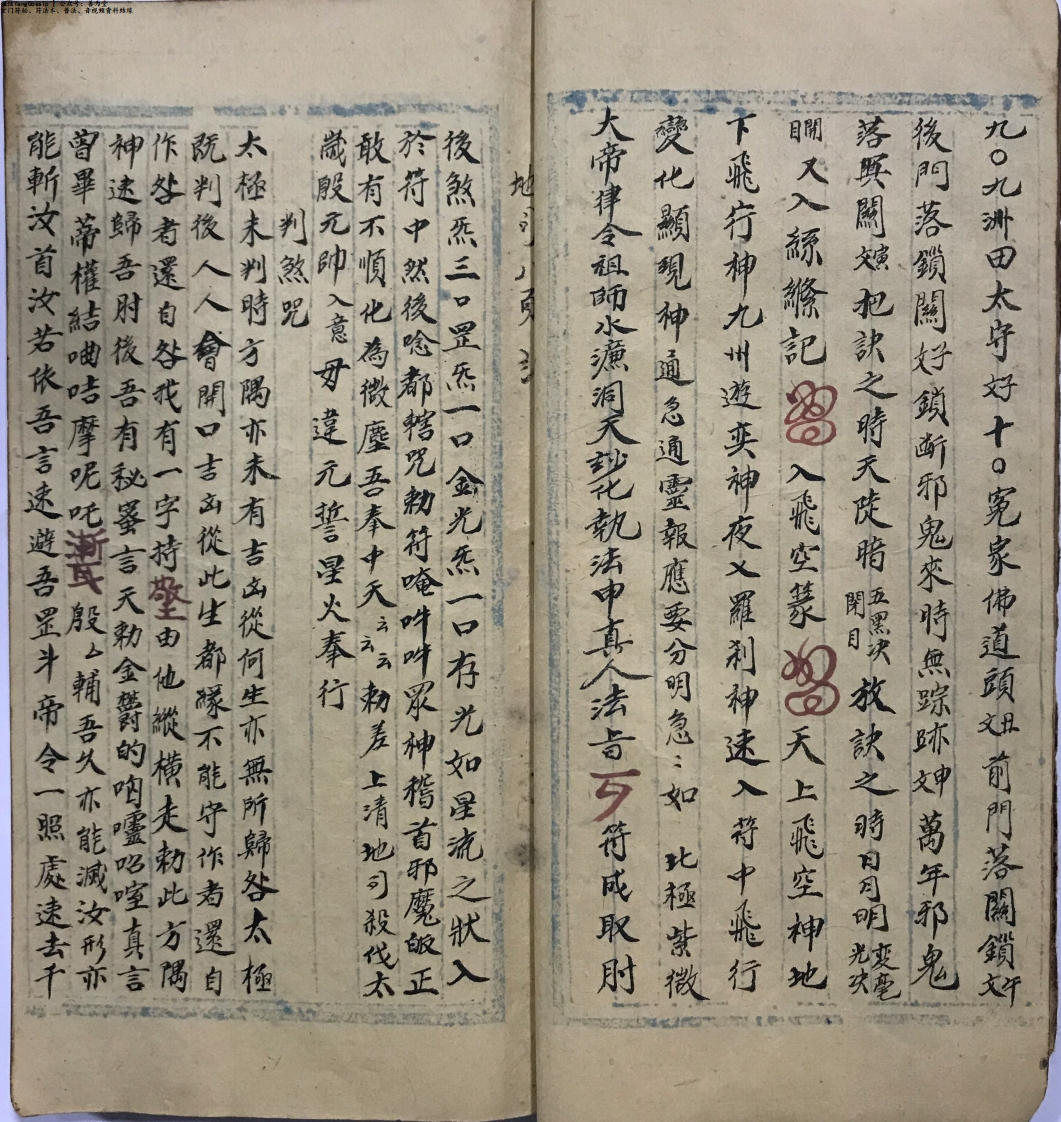 九〇九洲田太守好十〇冤家佛道頭丑文前門落關鎖午文
後門落鎖關好鎖断邪鬼來時無踪跡申文萬年邪鬼
落興關寅文把訣之時天陡暗五黑决閉目放訣之時日月明変毫光决
開目又入絲縧記入飛空篆天上飛空神地
下飛行神九州遊奕神夜乂羅刹神速入符中飛行
變化顯現神通急通靈報應要分明急〻如北極紫微
大帝律令祖師水濂洞天玅化執法申真人法旨符成取肘
地司
後煞炁三口罡炁一口金光炁一口存光如星流之狀入
於符中然後唸都轄咒勅符唵吽吽眾神稽首邪魔皈正
敢有不順化為微塵吾奉中天云云勅差上清地司殺伐太
歲殷元帥入意毋違元誓星火奉行
判煞咒
太極未判時方隅亦未有吉凶從何生亦無所歸咎太極
既判後人人會開口吉凶從此生都緣不能守作者還自
作咎者還自咎我有一字持由他縱橫走勅此方隅
神速歸吾肘後吾有秘蜜言天勅金欝的呴嚧呪喹真言
曾畢蒂權結㘗咭摩呢吒殷厶輔吾久亦能滅汝形亦
能斬汝首汝若依吾言速避吾罡斗帝令一照處速去千